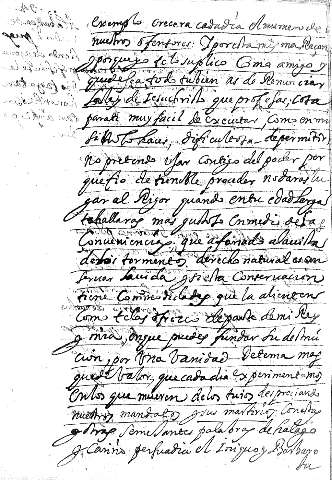 exemplo crecera cada dia el numero de
nuestros ofensores: y por esta misma Raçon
porque yo te lo suplico Como amigo y
por todo tu bien as de Renunciar
la ley de Jesuchristo que profesas; cosa
para ti muy facil de executar, como en mi
si no lo haces, dificultosa de permitir
no pretendo usar Contigo del poder por
que fio de tu noble proceder no daras lu
gar al Rigor quando en tu edad larga
hallaras mas gusto en medio de la
Conveniencia, que afanado a la vista
de los tormentos derecho natural es con
servar la vida y si esta Conservacion
tiene Comodidades que la alienten
Como te las ofrece de parte de mi Rey
y mia, en que puedes fundar tu destruc
cion, por una vanidad de tema mas
que de valor, que cada dia experimentamos
en los que mueren de los tuios despreciando
nuestros mandatos y sus martirios Con estas
y otras semejantes palabras de halago
y Cariño persuadia el iniquo y Barbaro